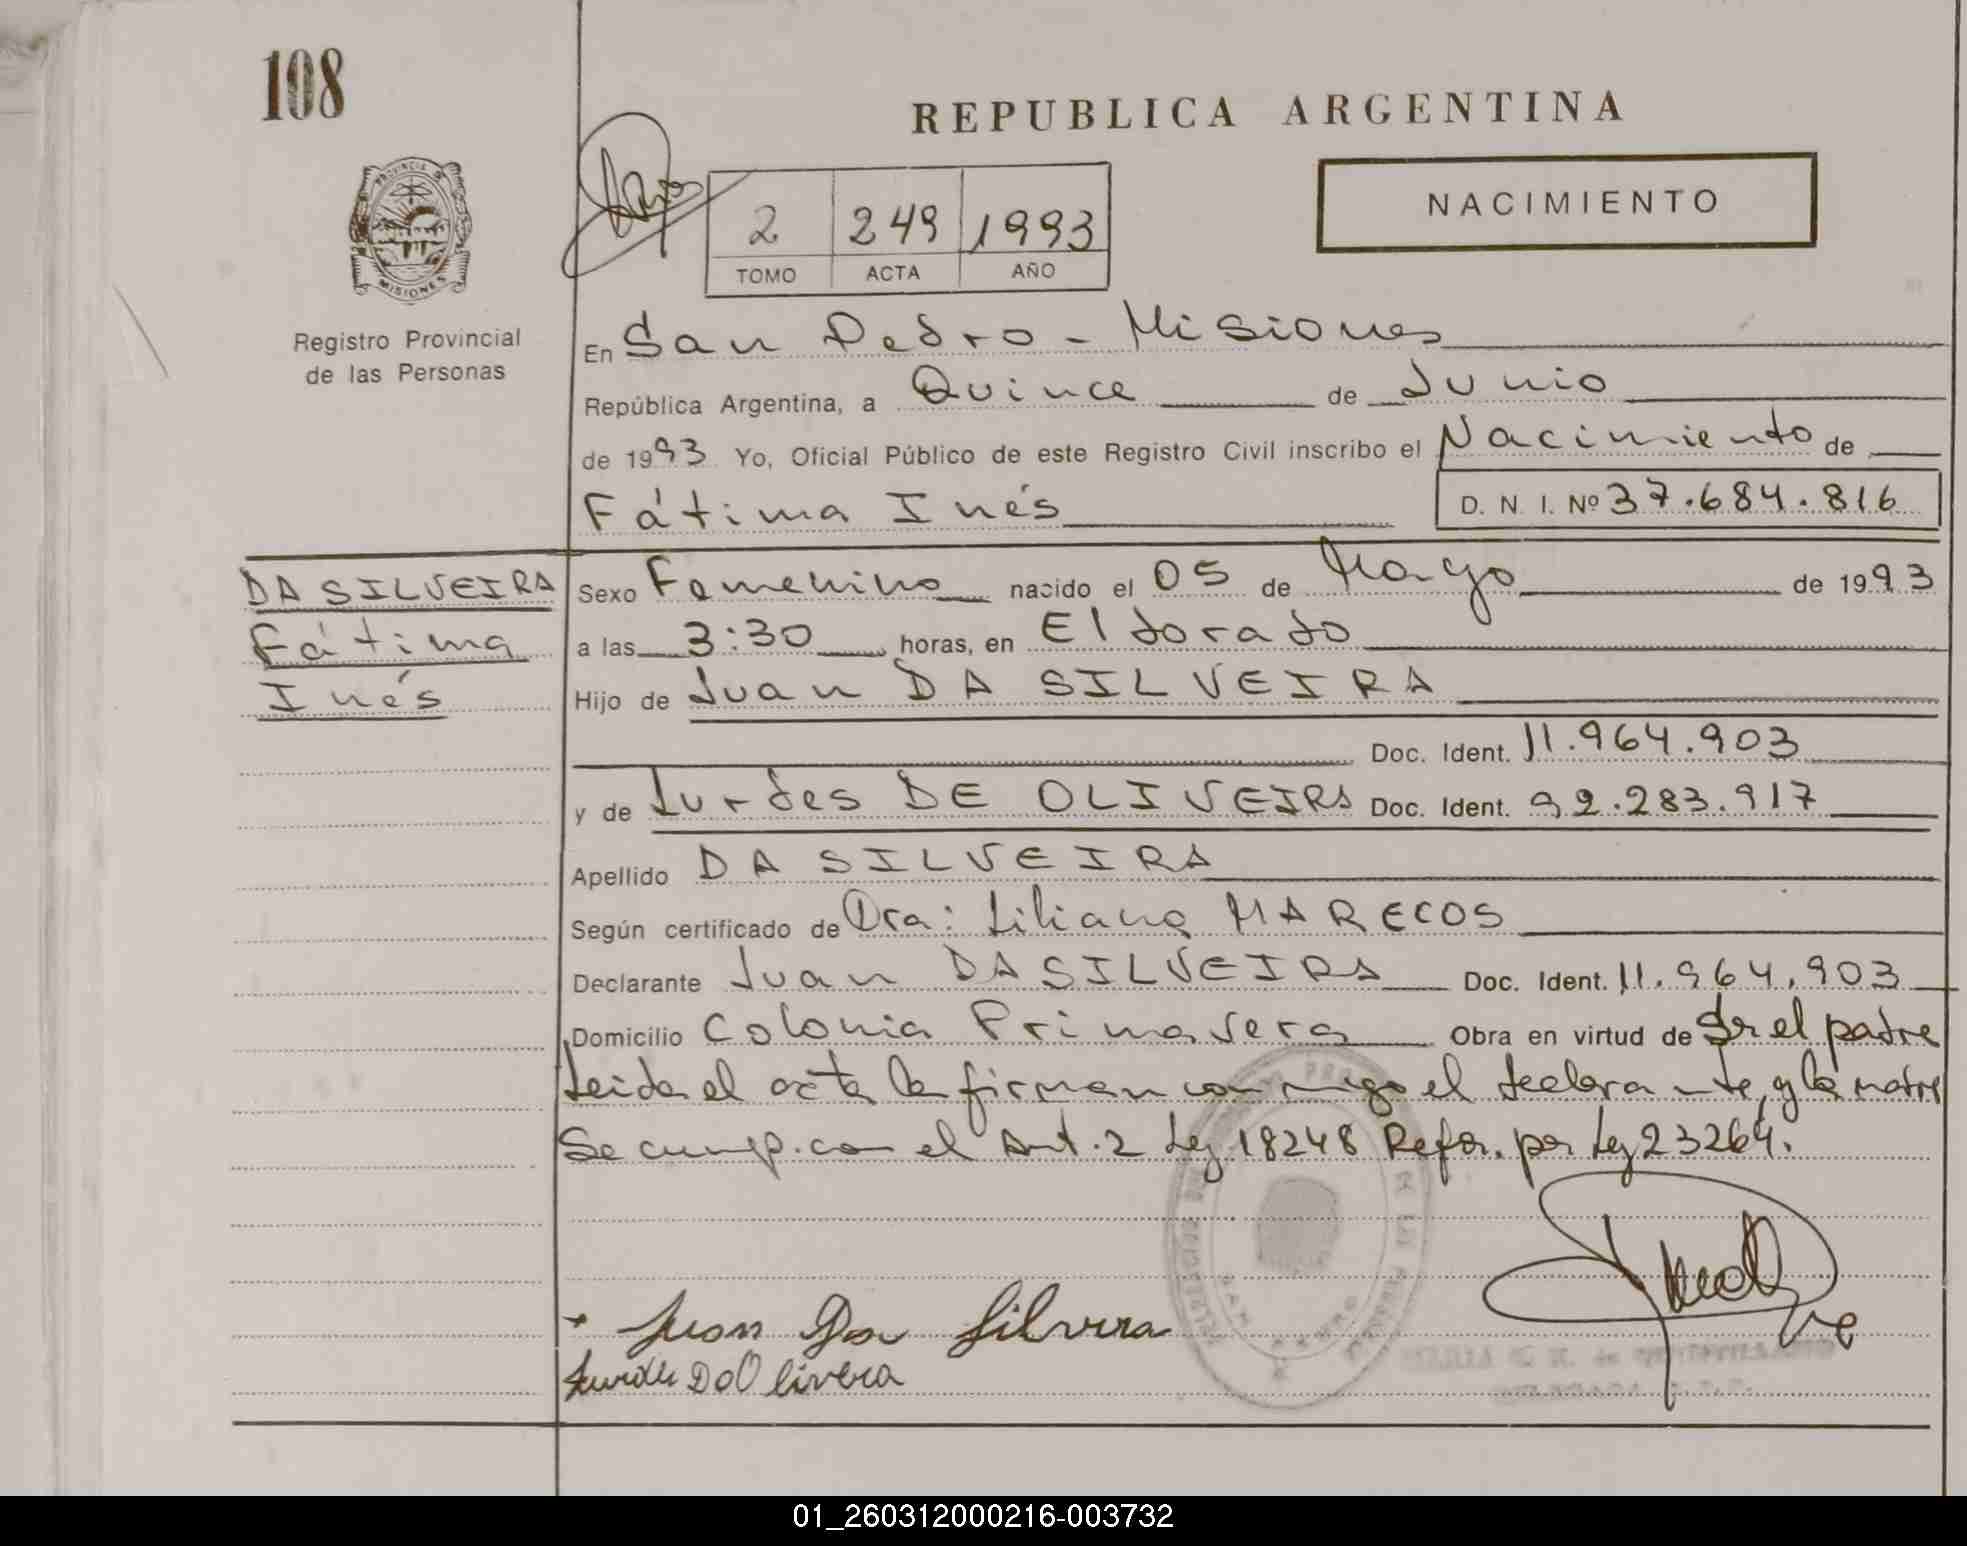 108
REPUBLICA ARGENTINA
PROVINCIA DE
MISIONES
2 249 1993
TOMO ACTA AÑO
NACIMIENTO
Registro Provincial
de las Personas
En San Pedro - Misiones
República Argentina, a Quince de Junio
de 1993 Yo, Oficial Público de este Registro Civil inscribo el Nacimiento de
Fátima Inés D. N. I. Nº 37.684.816
DA SILVEIRA
Fátima
Inés
Sexo Femenino nacido el 05 de Mayo de 1993
a las 3:30 horas, en Eldorado
Hijo de Juan DA SILVEIRA
Doc. Ident. 11.964.903
y de Lurdes DE OLIVEIRA Doc. Ident. 92.283.917
Apellido DA SILVEIRA
Según certificado de Dra: Liliana MARECOS
Declarante Juan DA SILVEIRA Doc. Ident. 11.964.903
Domicilio Colonia Primavera Obra en virtud de Ser el padre
Leida el acta la firman conmigo el declarante y la madre
Se cump. con el Art. 2 Ley 18248 Refor. por Ley 23264.
Juan Da Silveira
01_260312000216-003732